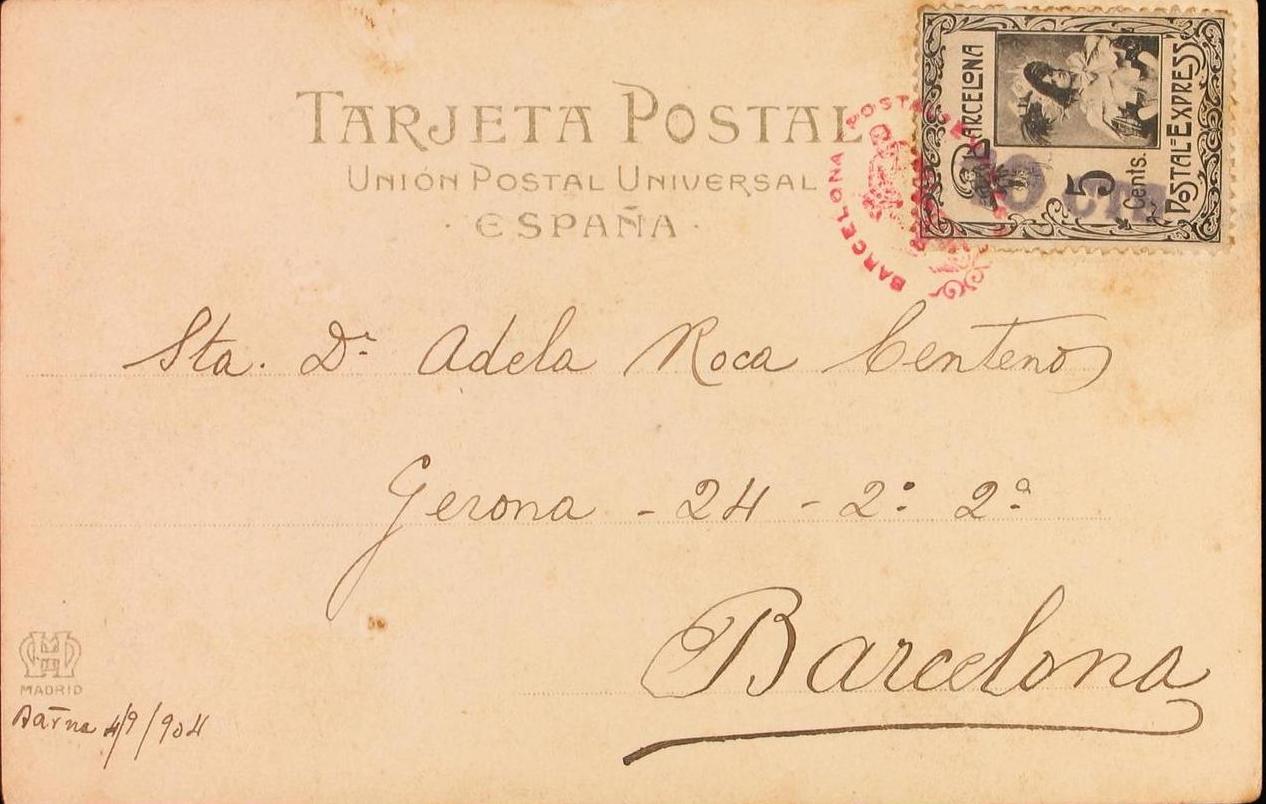 TARJETA POSTAL
UNIÓN POSTAL UNIVERSAL
· ESPAÑA ·
BARCELONA
5
Cents.
POSTAL EXPRESS
BARCELONA POSTAL
Sta. Dª Adela Roca Centeno
Gerona - 24 - 2º 2ª
Barcelona
MADRID
Barna 4/9/904